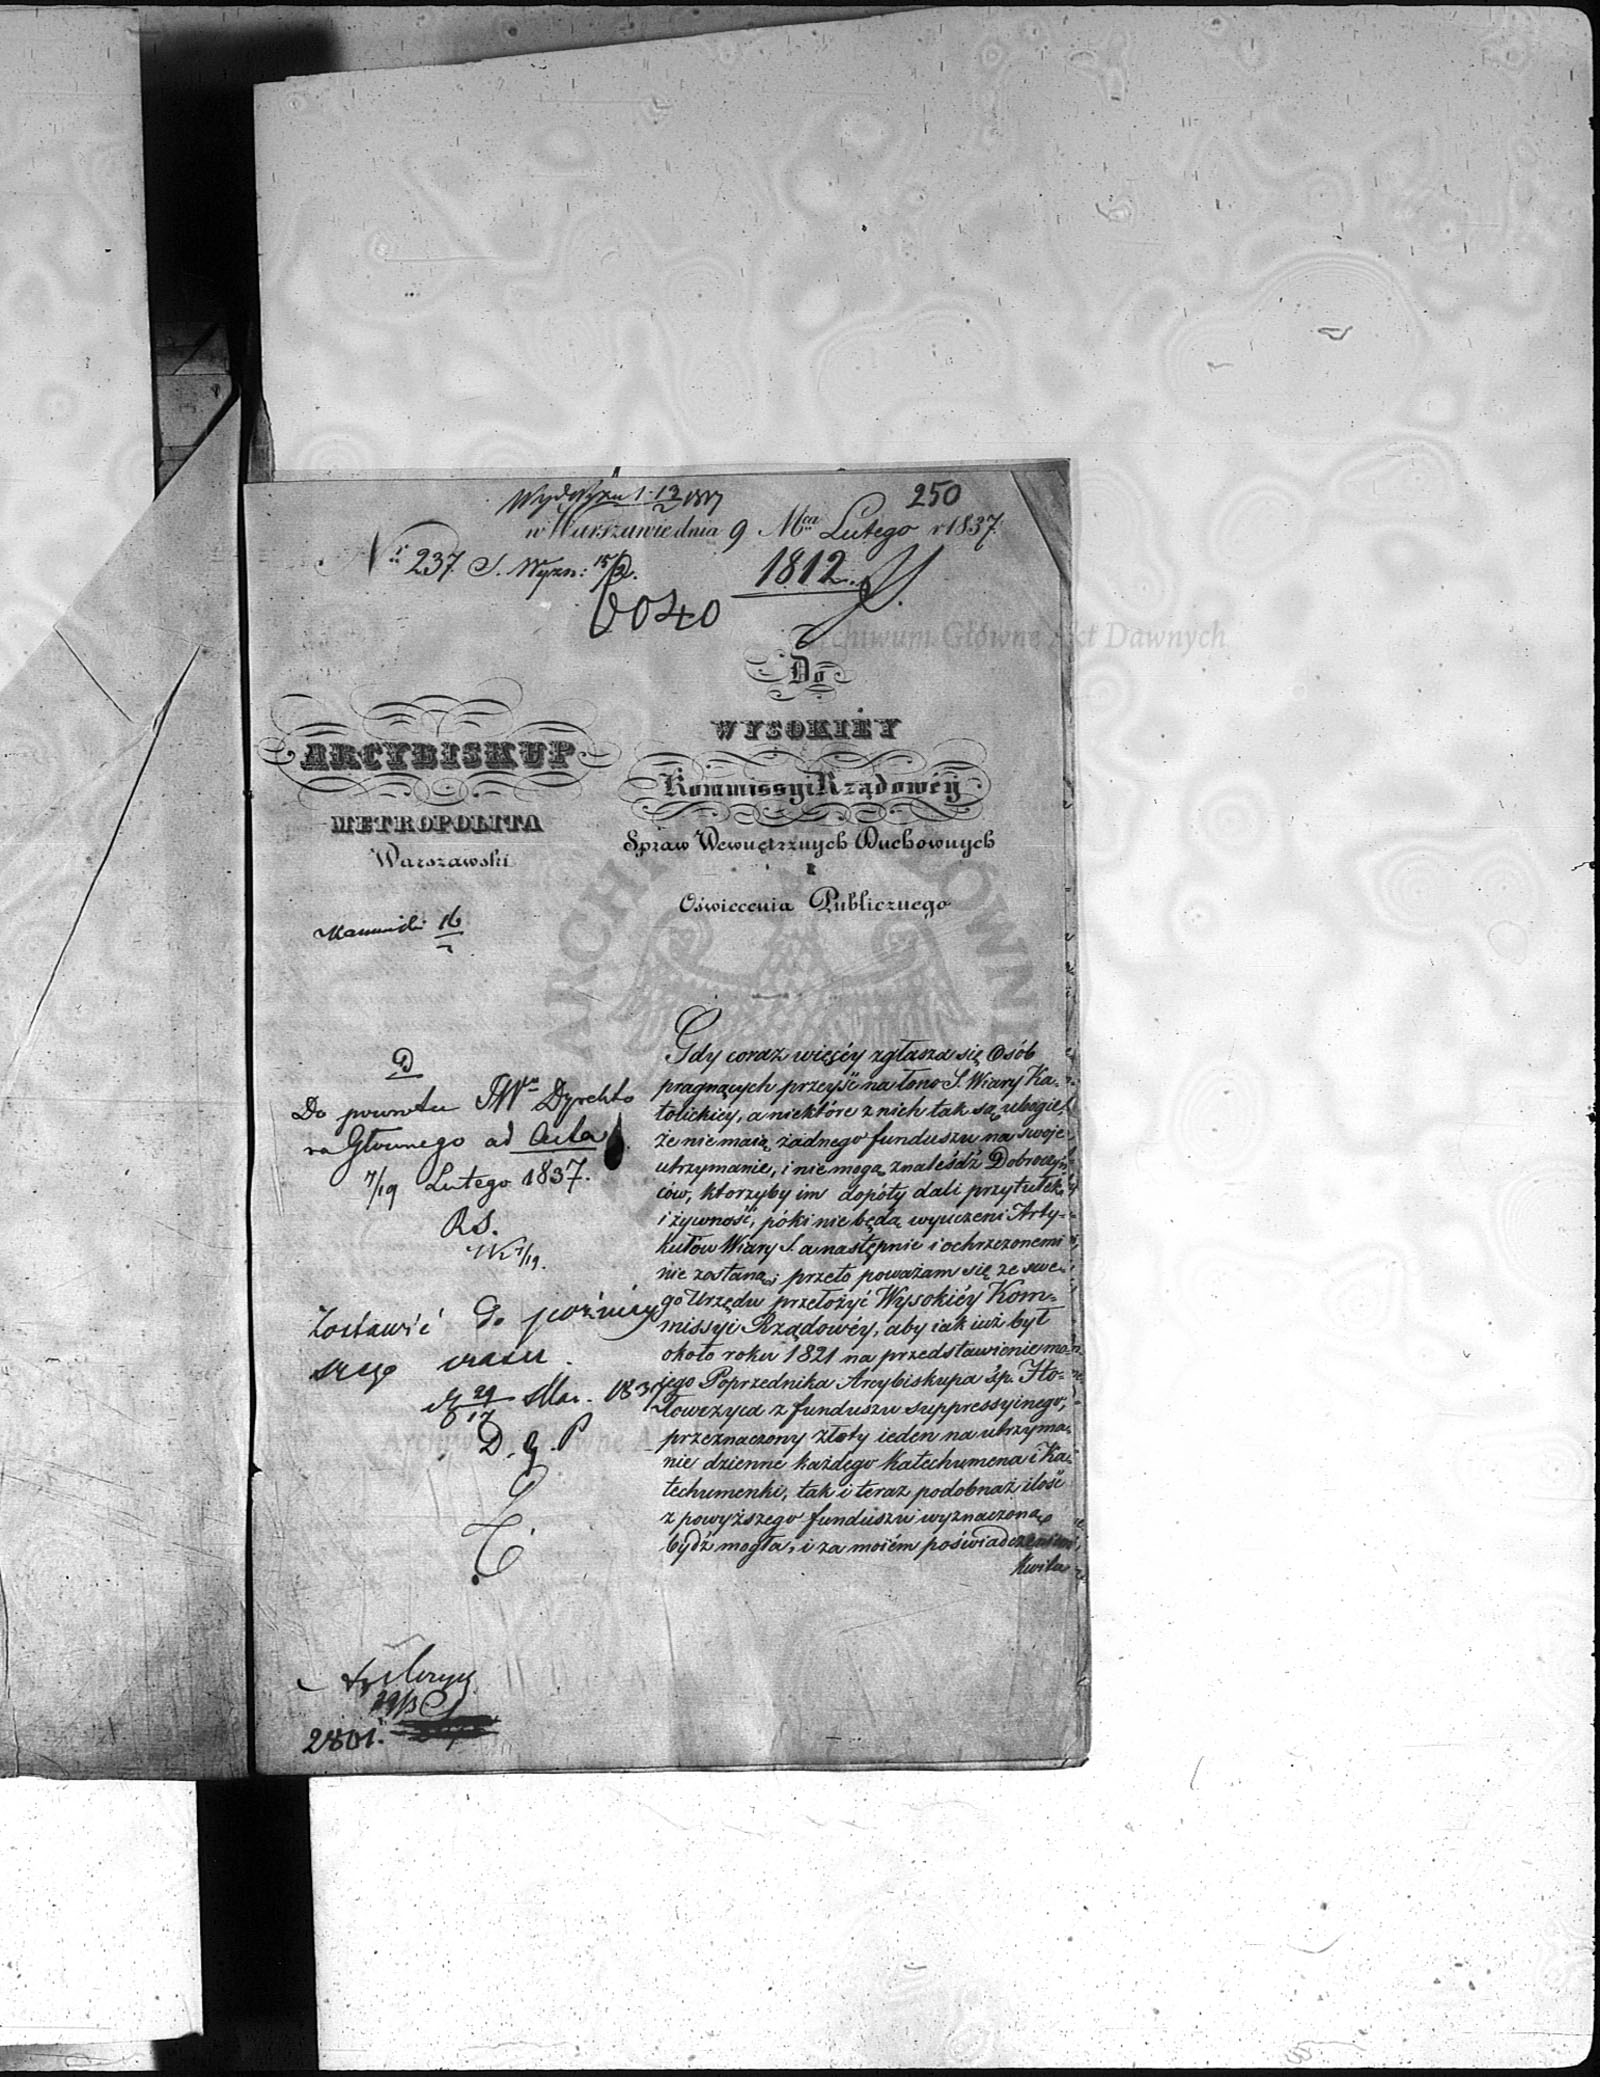 250
w Warszawie dnia 9 Mca Lutego r 1837.
Nr 237 S. Wyzn: 15/2.
1812
6040
Do
WYSOKIÉY
Kommissyi Rządowéy
Spraw Wewnętrznych Duchownych
i
Oświecenia Publicznego
ARCYBISKUP
METROPOLITA
Warszawski
16
D
Do powrotu JW Dyrekto
ra Głownego ad Acta
7/19 Lutego 1837.
RS.
7/19.
Zostawić do poźniey
szego czasu.
29/17 Mar. 1837
D. G. P
Gdy coraz więcéy zgłasza się Osób
pragnących przeyść na łono S. Wiary Ka-
tolickiey, a niektóre z nich tak są ubogie,
że nie maią żadnego funduszu na swoje
utrzymanie, i nie mogą znaleśdź Dobroczyń
ców, ktorzyby im dopóty dali przytułek
i żywność, póki nie będą wyuczeni Arty-
kułów Wiary S. a następnie i ochrzczonemi
nie zostaną; przeto poważam się ze swe-
go Urzędu przełożyć Wysokiéy Kom-
missyi Rządowéy, aby iak iuż był
około roku 1821 na przedstawienie mo-
jego Poprzednika Arcybiskupa śp. Hło-
łowczyca z funduszu suppressyinego,
przeznaczony złoty ieden na utrzyma-
nie dzienne każdego Katechumena i Ka-
techumenki, tak i teraz podobnaż ilość
z powyższego funduszu wyznaczoną
bydź mogła, i za moiém poświadczeniem
kwita
2801.
Archiwum Główne Akt Dawnych